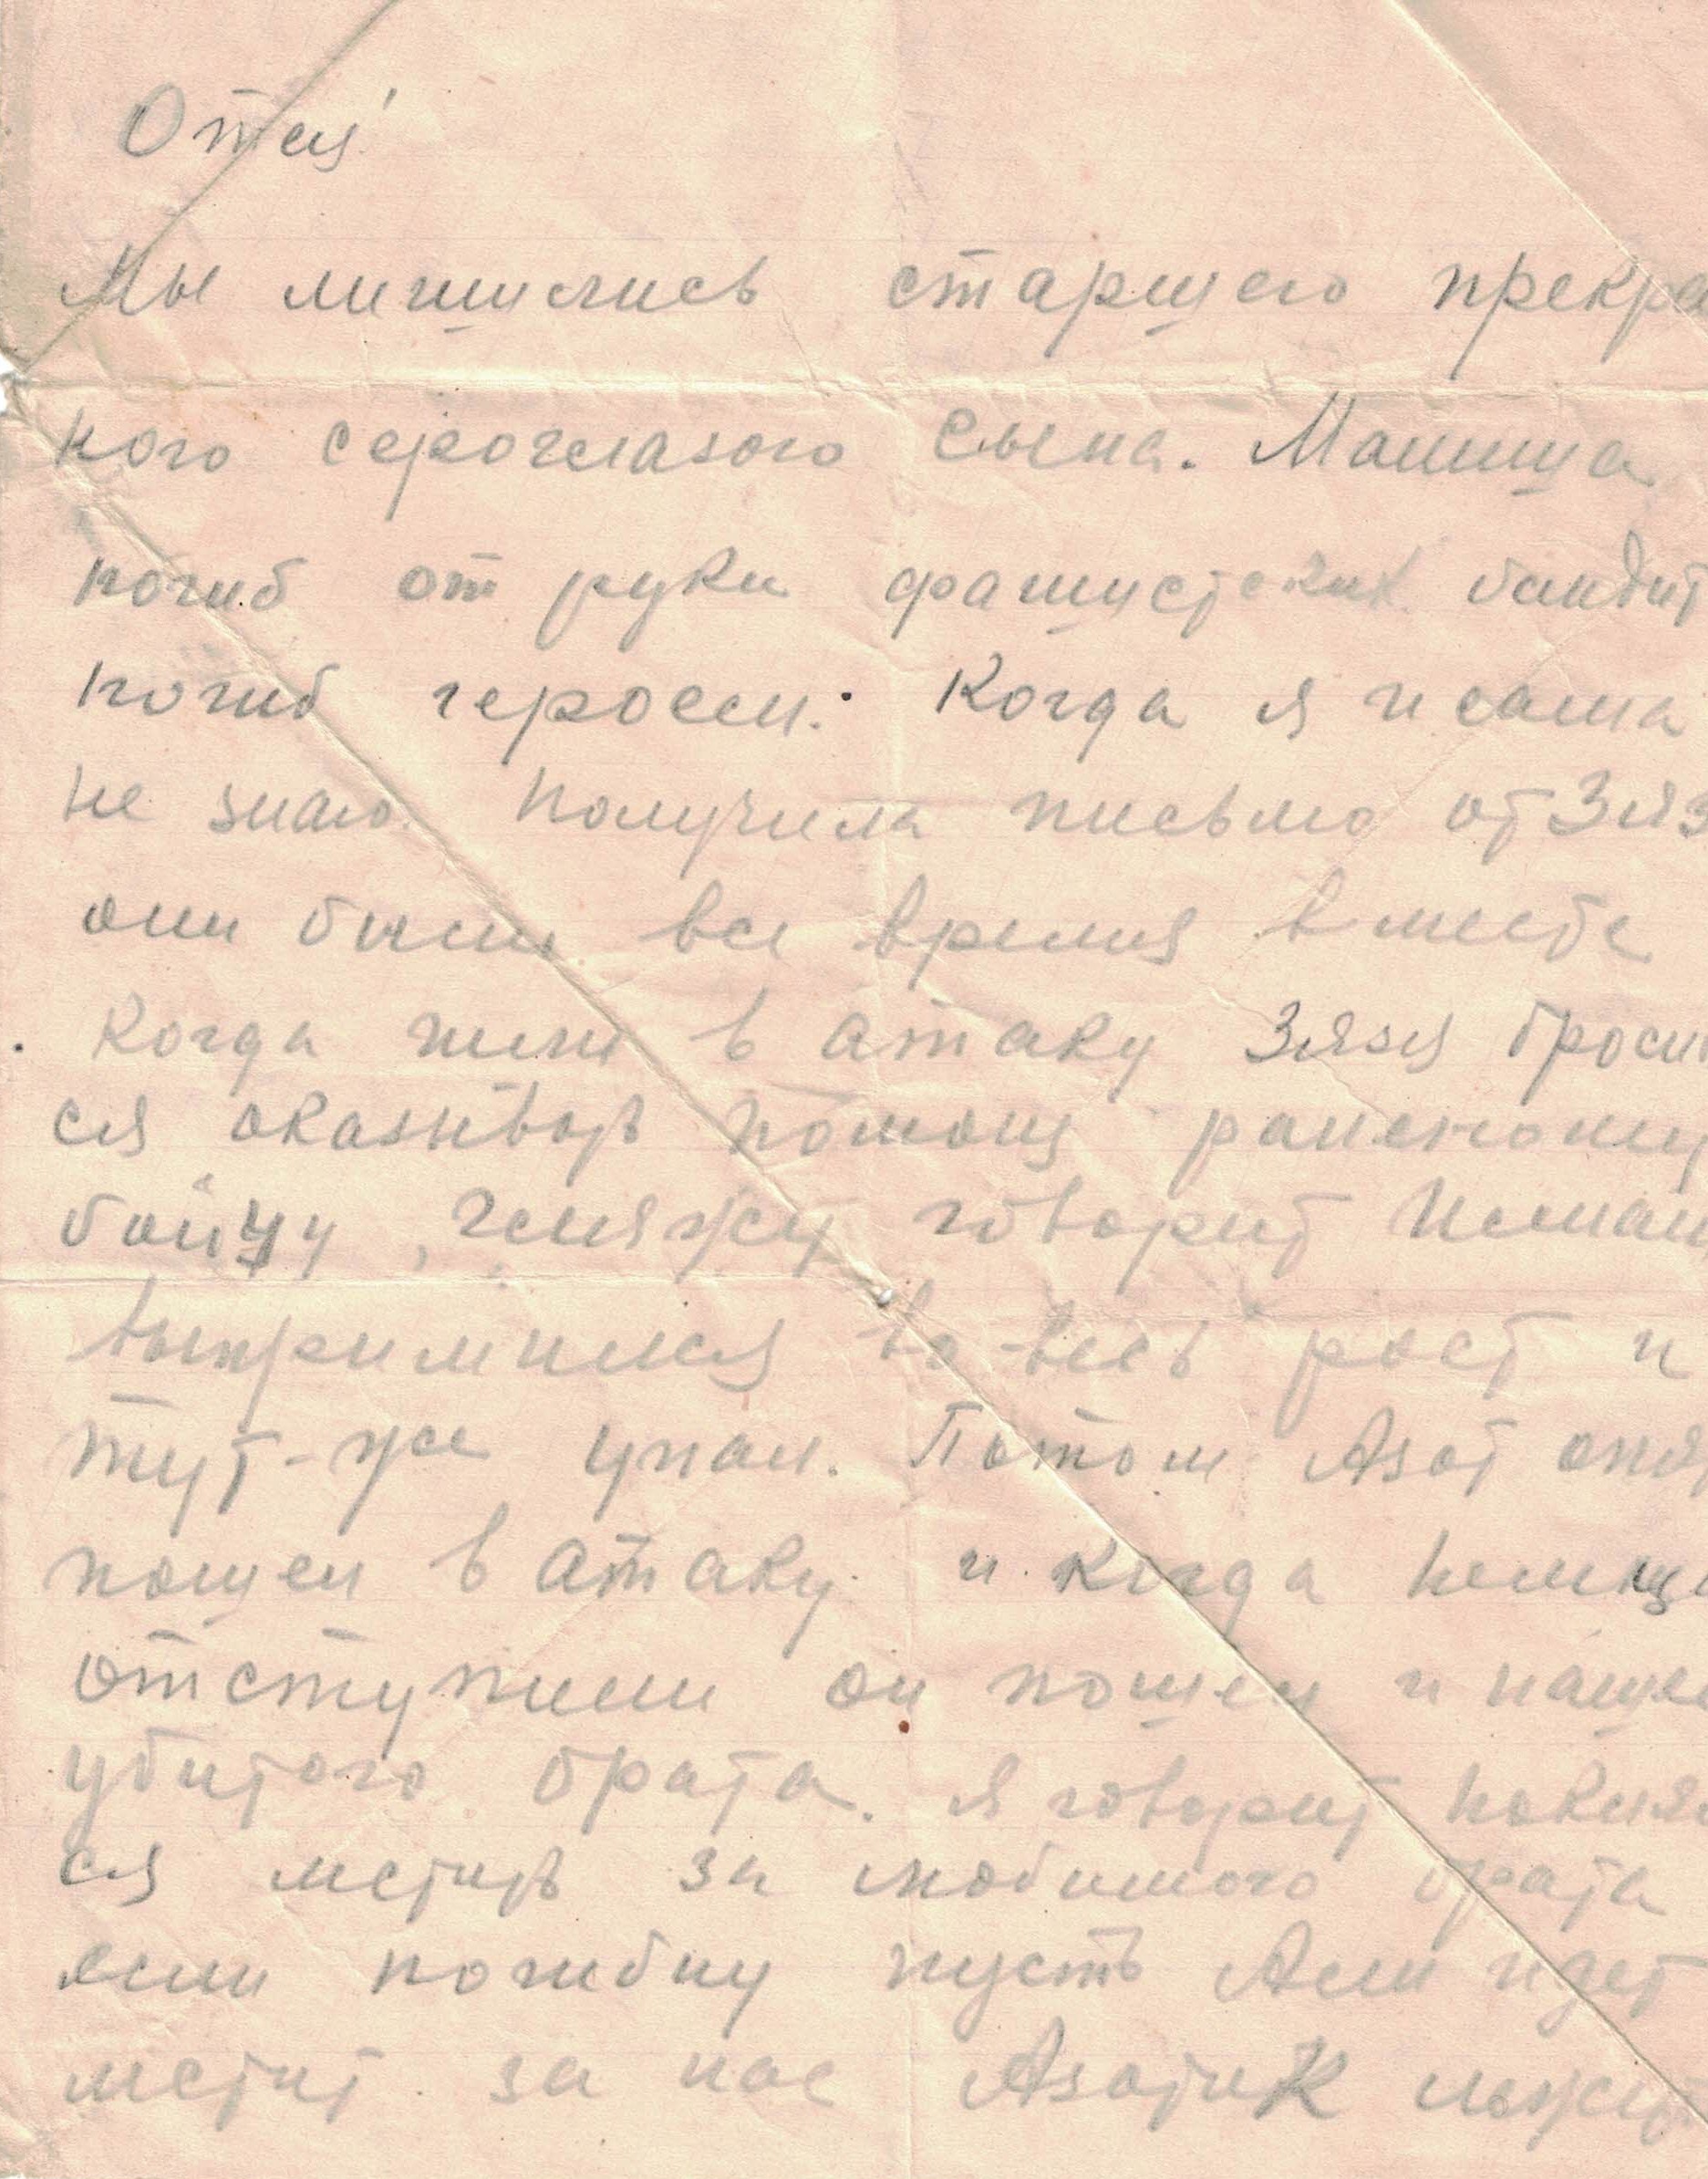 Отся!
Мы лишились старшего прекрас
ного сероглазого сына. Маниша
погиб от руки фашистских бандит
погиб героем. Когда я и сама
не знаю. Получила письмо от Зяз
они были все время вместе
Когда шли в атаку Зязя бросил
ся оказывать помощь раненому
бойцу, гляжу говорит
выпримился во-весь рост и
тут-же упал. Потом Азат опят
пошел в атаку и когда немцы
отступили он пошел и нашел
убитого брата. Я говорит поклял
ся мстить за любимого брата
если погибну пусть Али идет
мстит за нас Азатик лежит